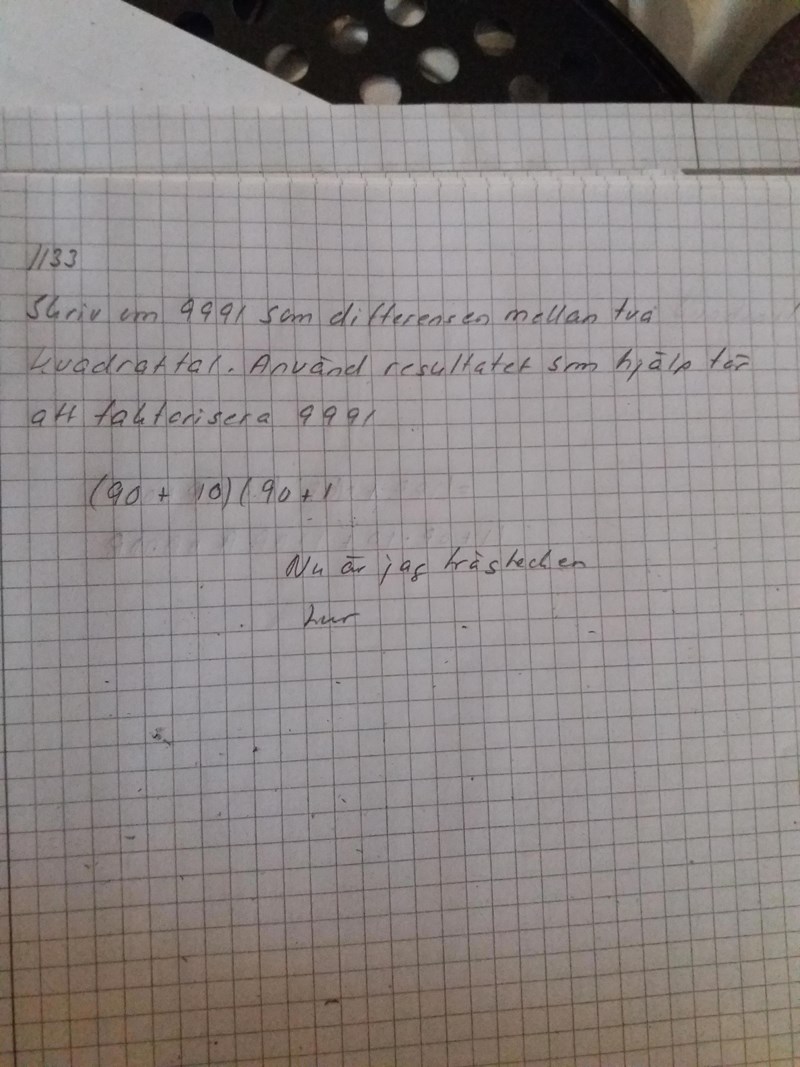 1133
Skriv om 9991 som differensen mellan två
kvadrattal. Använd resultatet som hjälp för
att faktorisera 9991
(90 + 10)(90+1
Nu är jag frågtecken
hur